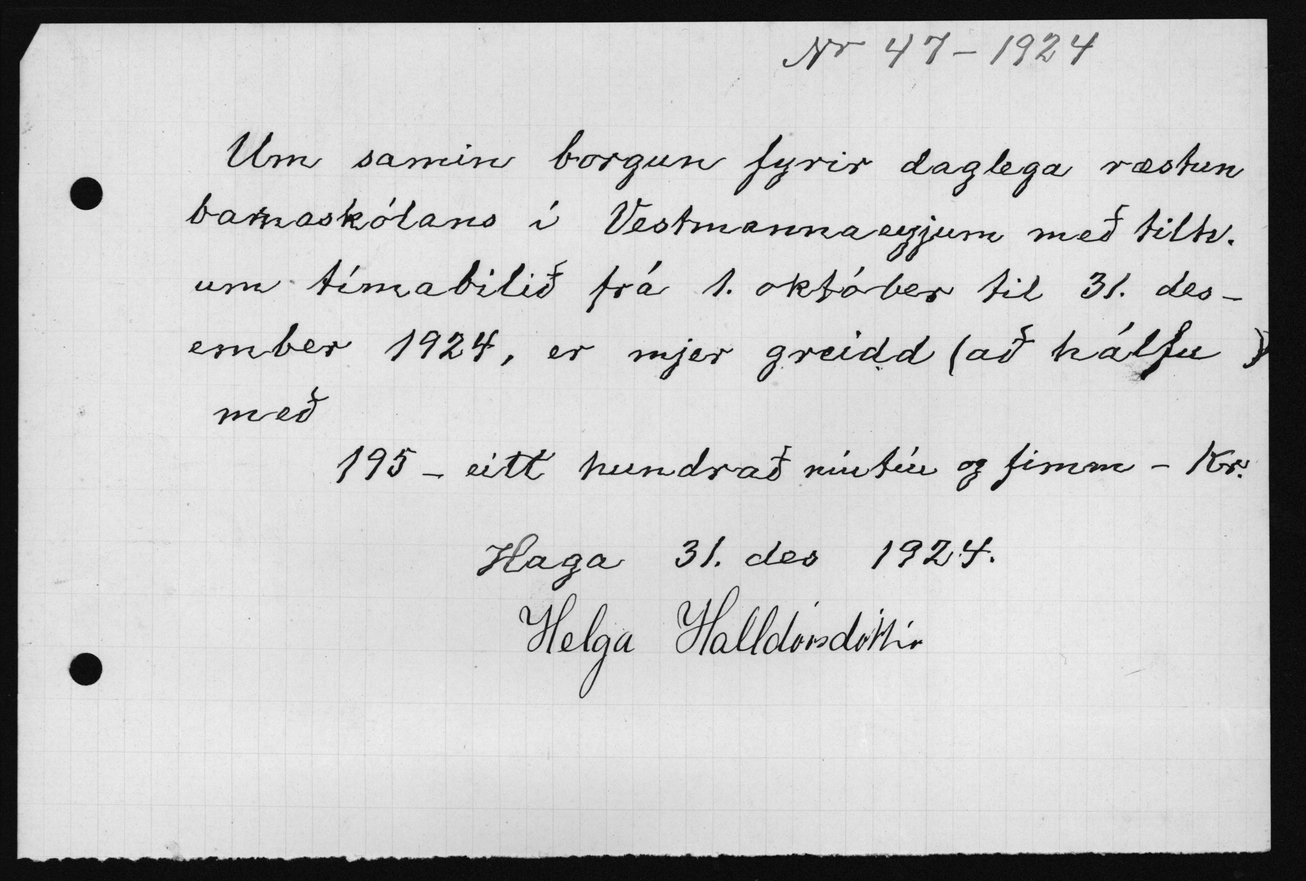 Nr 47 - 1924
Um samin borgun fyrir daglega ræstun
barnaskólans í Vestmannaeyjum með tilh.
um tímabilið frá 1. október til 31. des-
ember 1924, er mjer greidd (að hálfu )
með
195 - eitt hundrað níutíu og fimm - Kr.
Haga 31. des 1924.
Helga Halldórsdóttir